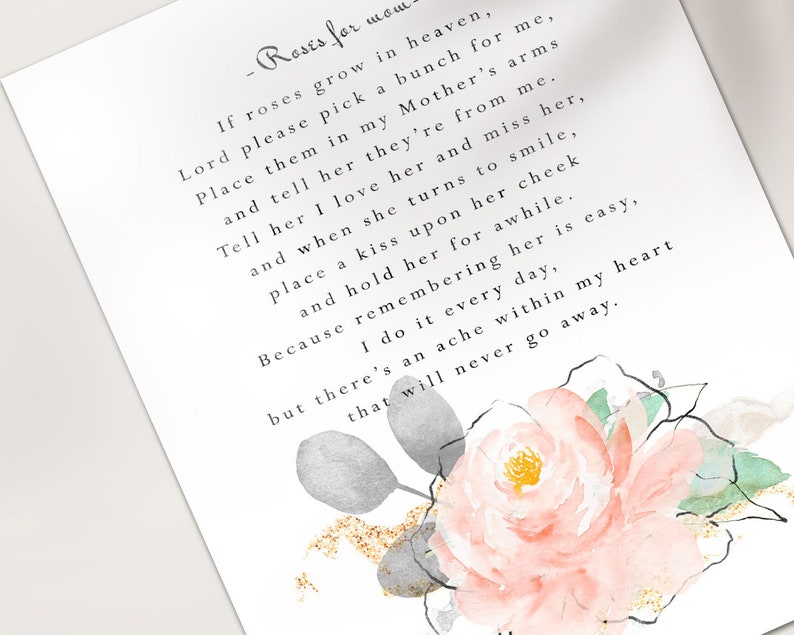 - Roses for mom -
If roses grow in heaven,
Lord please pick a bunch for me,
Place them in my Mother's arms
and tell her they're from me.
Tell her I love her and miss her,
and when she turns to smile,
place a kiss upon her cheek
and hold her for awhile.
Because remembering her is easy,
I do it every day,
but there's an ache within my heart
that will never go away.